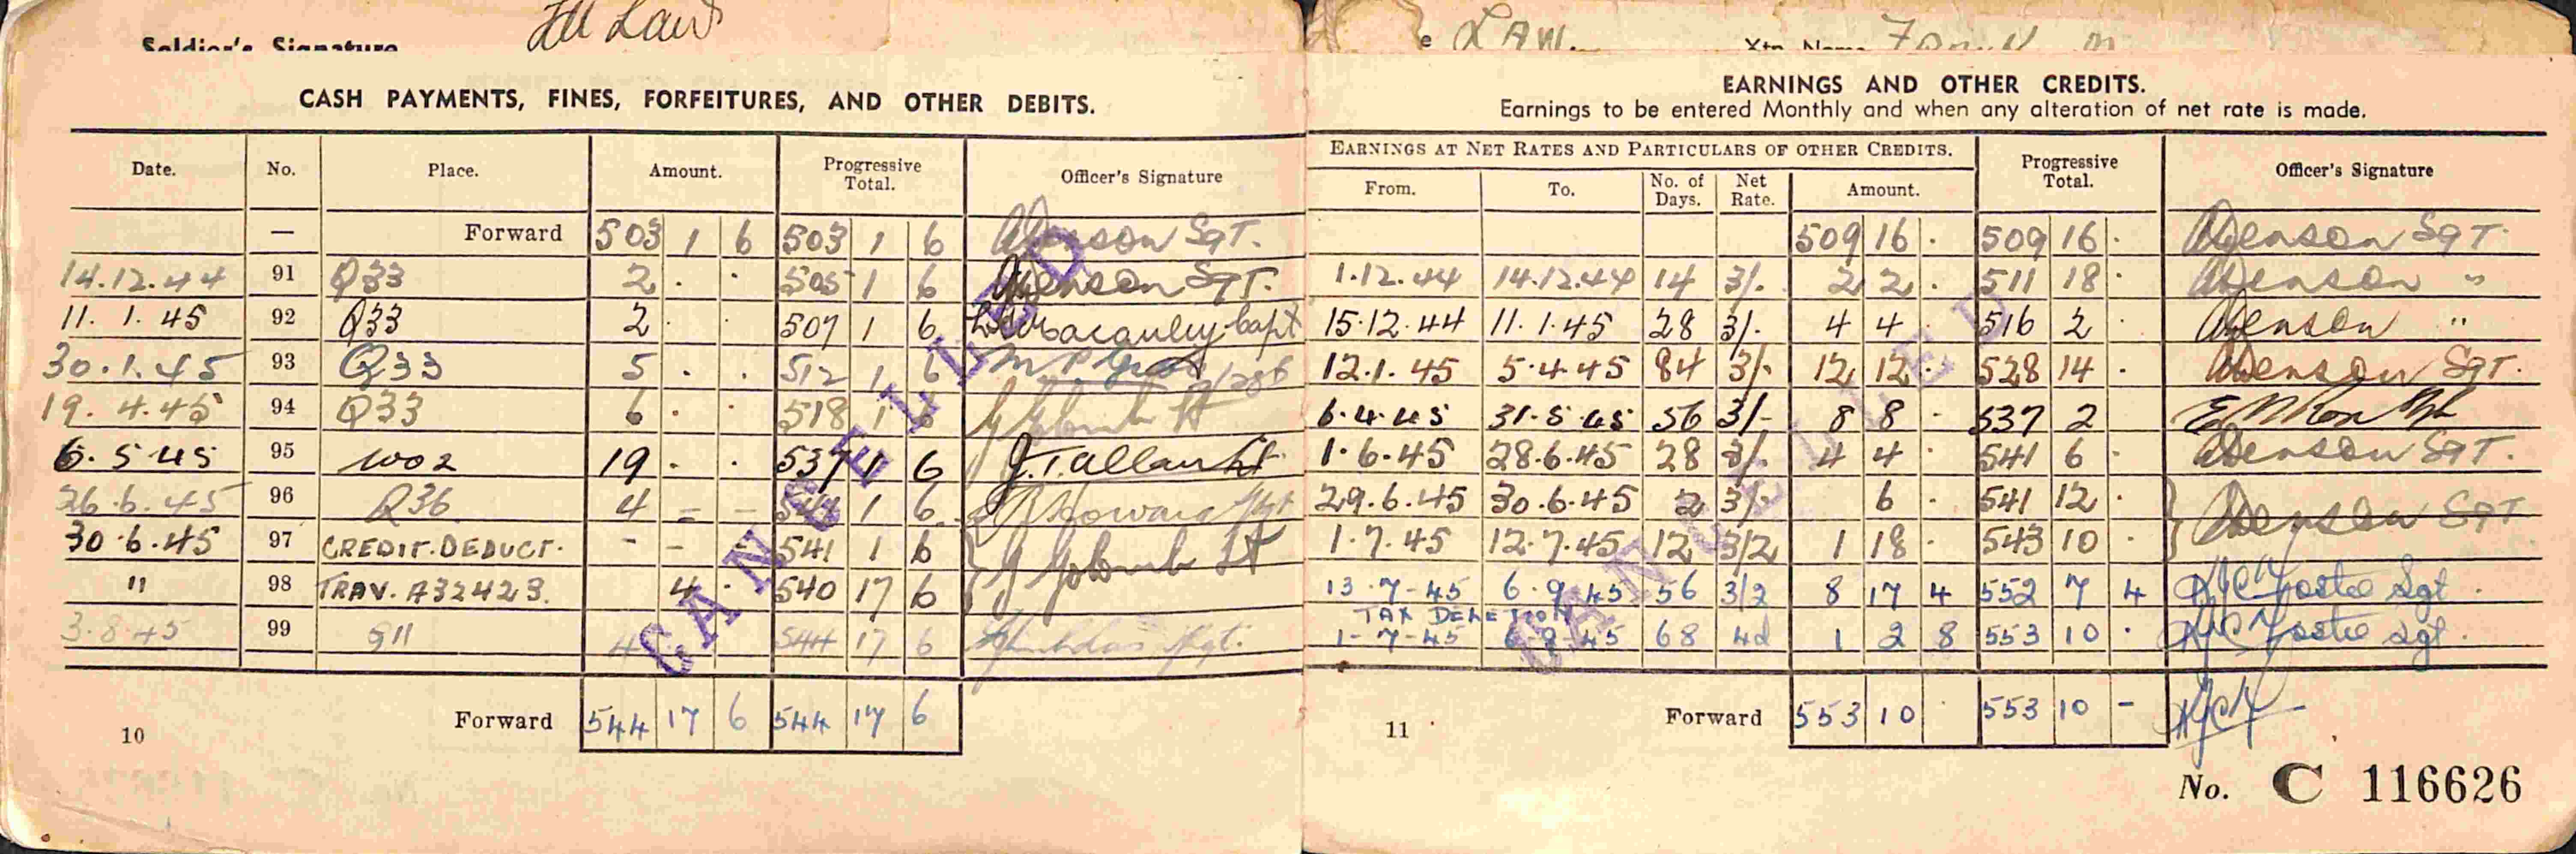 Soldier's Signature Law
CASH PAYMENTS, FINES, FORFEITURES, AND OTHER DEBITS.
Date. No. Place. Amount. Progressive Total. Officer's Signature
— Forward 503 1 6 503 1 6 Sgt.
14.12.44 91 Q33 2 . . 505 1 6 Sgt.
11.1.45 92 Q33 2 . . 507 1 6 Macauley Capt
30.1.45 93 Q33 5 . . 512 1 6
19.4.45 94 Q33 6 . . 518 1 6 Lt
6.5.45 95 WO2 19 . . 537 1 6 J. T. Allan Lt
26.6.45 96 Q36 4 - - 1 6 Howard
30.6.45 97 CREDIT.DEDUCT. - - - 541 1 6
" 98 TRAV. A32423. 4 . 540 17 6 Lt
3.8.45 99 4 544 17 6
Forward 544 17 6 544 17 6
10
CANCELLED
e LAW. Xtn. Name
EARNINGS AND OTHER CREDITS.
Earnings to be entered Monthly and when any alteration of net rate is made.
EARNINGS AT NET RATES AND PARTICULARS OF OTHER CREDITS. Progressive Total. Officer's Signature
From. To. No. of Days. Net Rate. Amount.
509 16 . 509 16 . Sgt.
1.12.44 14.12.44 14 3/. 2 2 . 511 18 . "
15.12.44 11.1.45 28 3/. 4 4 . 516 2 . "
12.1.45 5.4.45 84 3/. 12 12 . 528 14 . Sgt.
6.4.45 31.5.45 56 3/- 8 8 . 537 2 .
1.6.45 28.6.45 28 3/. 4 4 . 541 6 . Sgt.
29.6.45 30.6.45 2 3/. 6 . 541 12 .
1.7.45 12.7.45 12 3/2 1 18 . 543 10 . Sgt
13-7-45 6.9.45 56 3/2 8 17 4 552 7 4 Sgt.
TAX
1-7-45 6-9-45 68 4d 1 2 8 553 10 . Sgt.
Forward 553 10 553 10 -
11
CANCELLED
No. C 116626